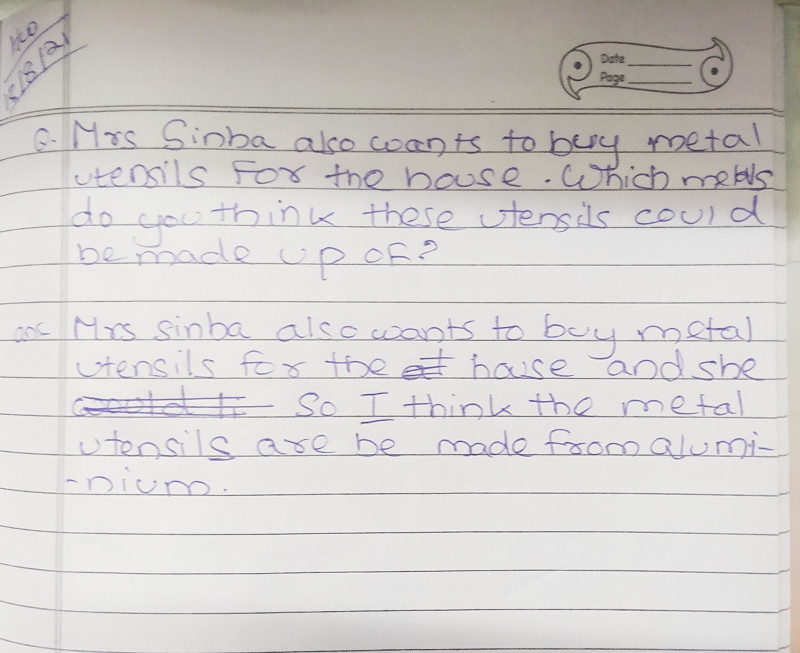 H.O
15/8/21
Date
Page
Q. Mrs Sinba also wants to buy metal
utensils For the house. Which metals
do you think these utensils could
be made up of?
ans Mrs sinba also wants to buy metal
utensils for the house and she
So I think the metal
utensils are be made from alumi-
-nium.